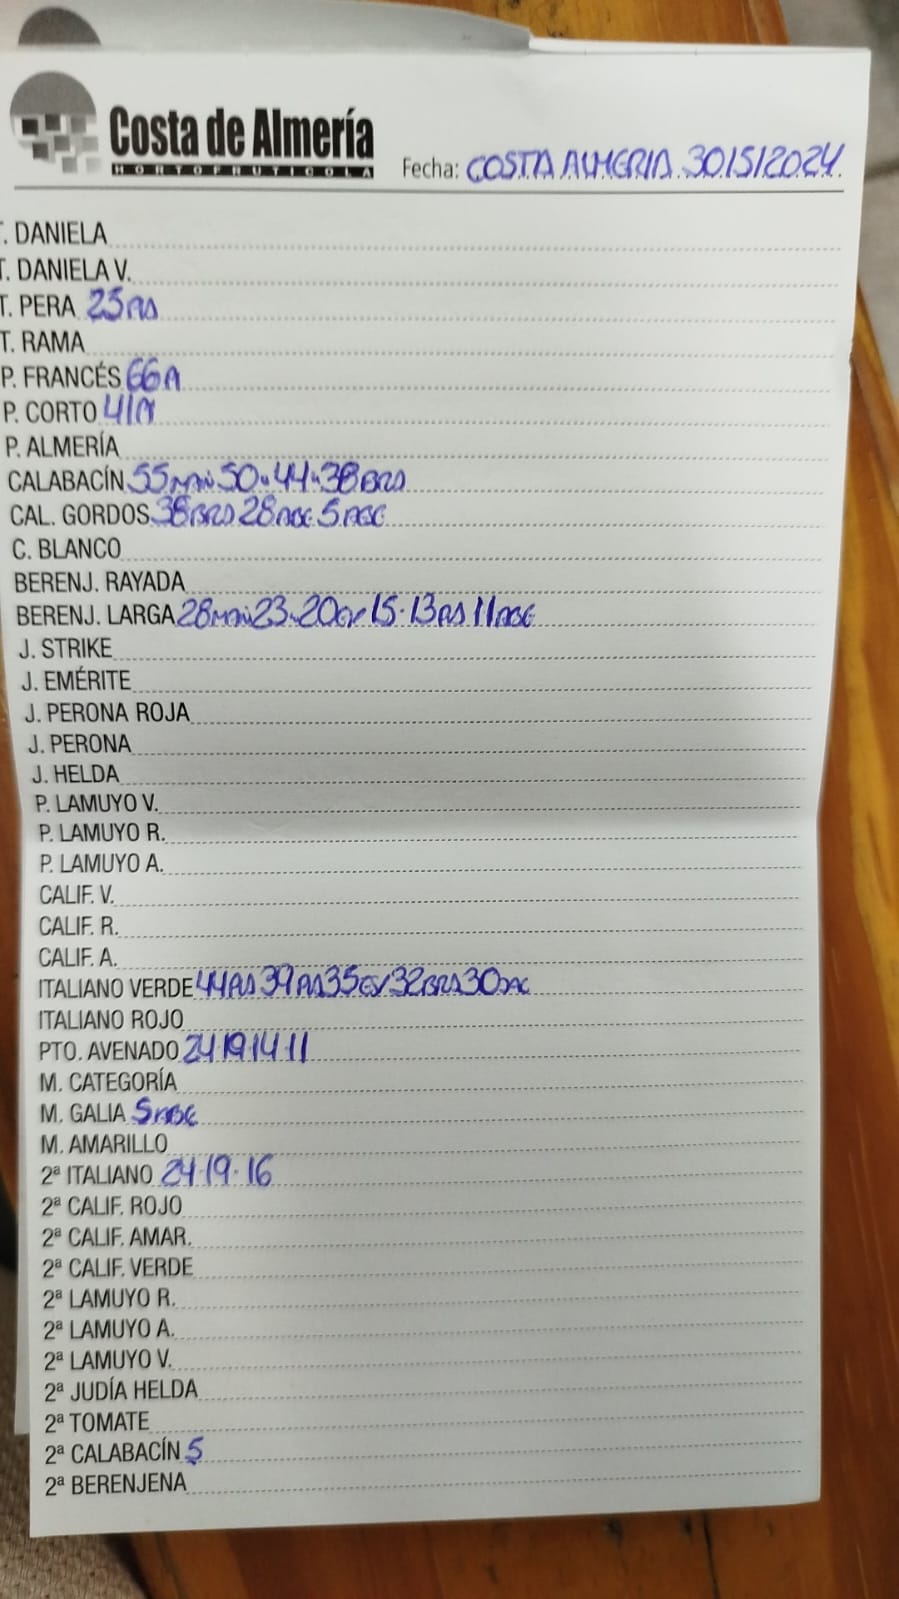 Costa de Almería
HORTOFRUTICOLA
Fecha: COSTA ALMERIA. 30/5/2024.
T. DANIELA
T. DANIELA V.
T. PERA 25
T. RAMA
P. FRANCÉS 66A
P. CORTO 41
P. ALMERÍA
CALABACÍN 55 50 44 38
CAL. GORDOS 38 28 5
C. BLANCO
BERENJ. RAYADA
BERENJ. LARGA 28 23 20 15 13 11
J. STRIKE
J. EMÉRITE
J. PERONA ROJA
J. PERONA
J. HELDA
P. LAMUYO V.
P. LAMUYO R.
P. LAMUYO A.
CALIF. V.
CALIF. R.
CALIF. A.
ITALIANO VERDE 44 39 35 32 30
ITALIANO ROJO
PTO. AVENADO 24 19 14 11
M. CATEGORÍA
M. GALIA 5
M. AMARILLO
2ª ITALIANO 24·19·16
2ª CALIF. ROJO
2ª CALIF. AMAR.
2ª CALIF. VERDE
2ª LAMUYO R.
2ª LAMUYO A.
2ª LAMUYO V.
2ª JUDÍA HELDA
2ª TOMATE
2ª CALABACÍN 5
2ª BERENJENA